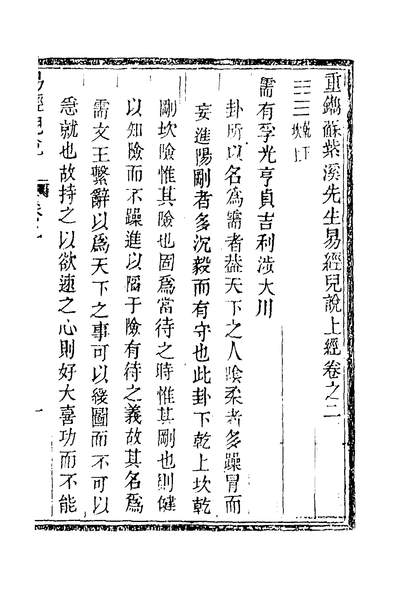 重鐫蘇紫溪先生易經兒說上經卷之二
䷄ 乾下坎上
需有孚光亨貞吉利涉大川
卦所以名為需者葢天下之人陰柔者多躁冒而
妄進陽剛者多沉毅而有守也此卦下乾上坎乾
剛坎險惟其險也固爲當待之時惟其剛也則健
以知險而不躁進以陷于險有待之義故其名爲
需文王繫辭以爲天下之事可以後圖而不可以
急就也故持之以欲速之心則好大喜功而不能
易經兒說 卷之 一